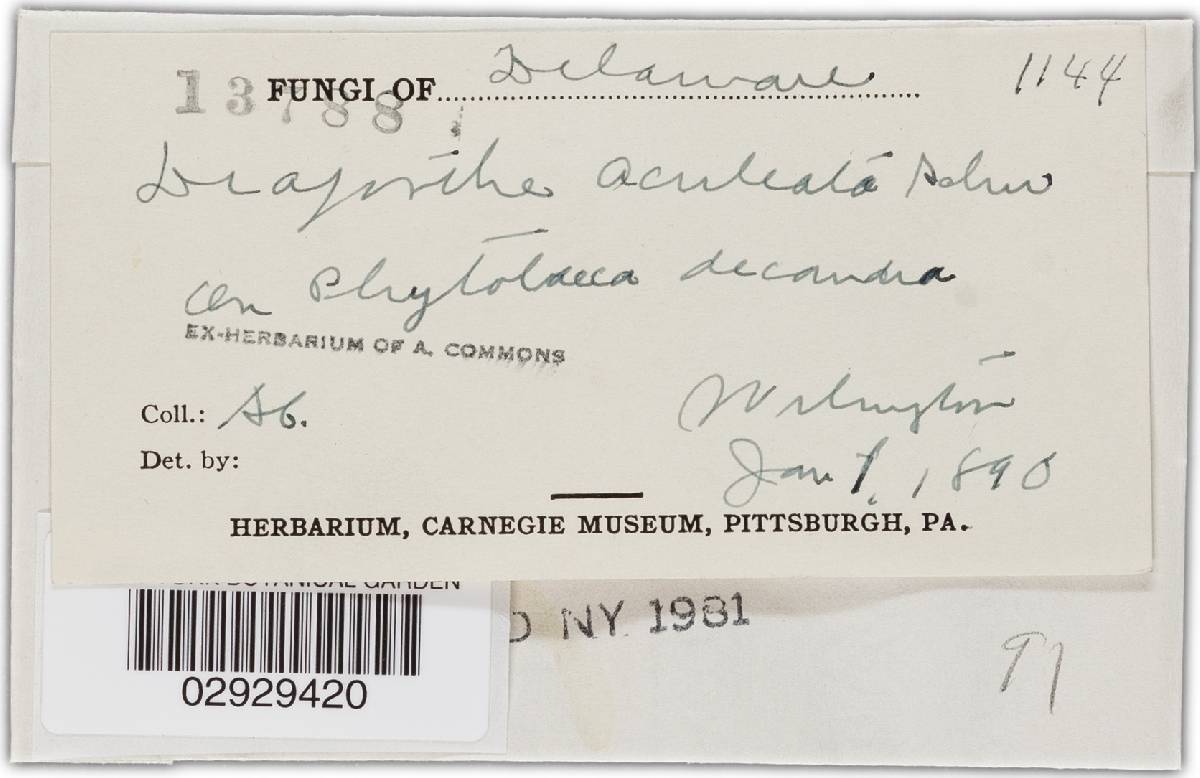 FUNGI OF Delaware 1144
13788
Diaporthe aculeata Schw
on Phytolacca decandra
EX-HERBARIUM OF A. COMMONS
Coll.: Wilmington
Det. by: Jan 1, 1890
HERBARIUM, CARNEGIE MUSEUM, PITTSBURGH, PA.
BOTANICAL GARDEN
NY 1981
02929420
97